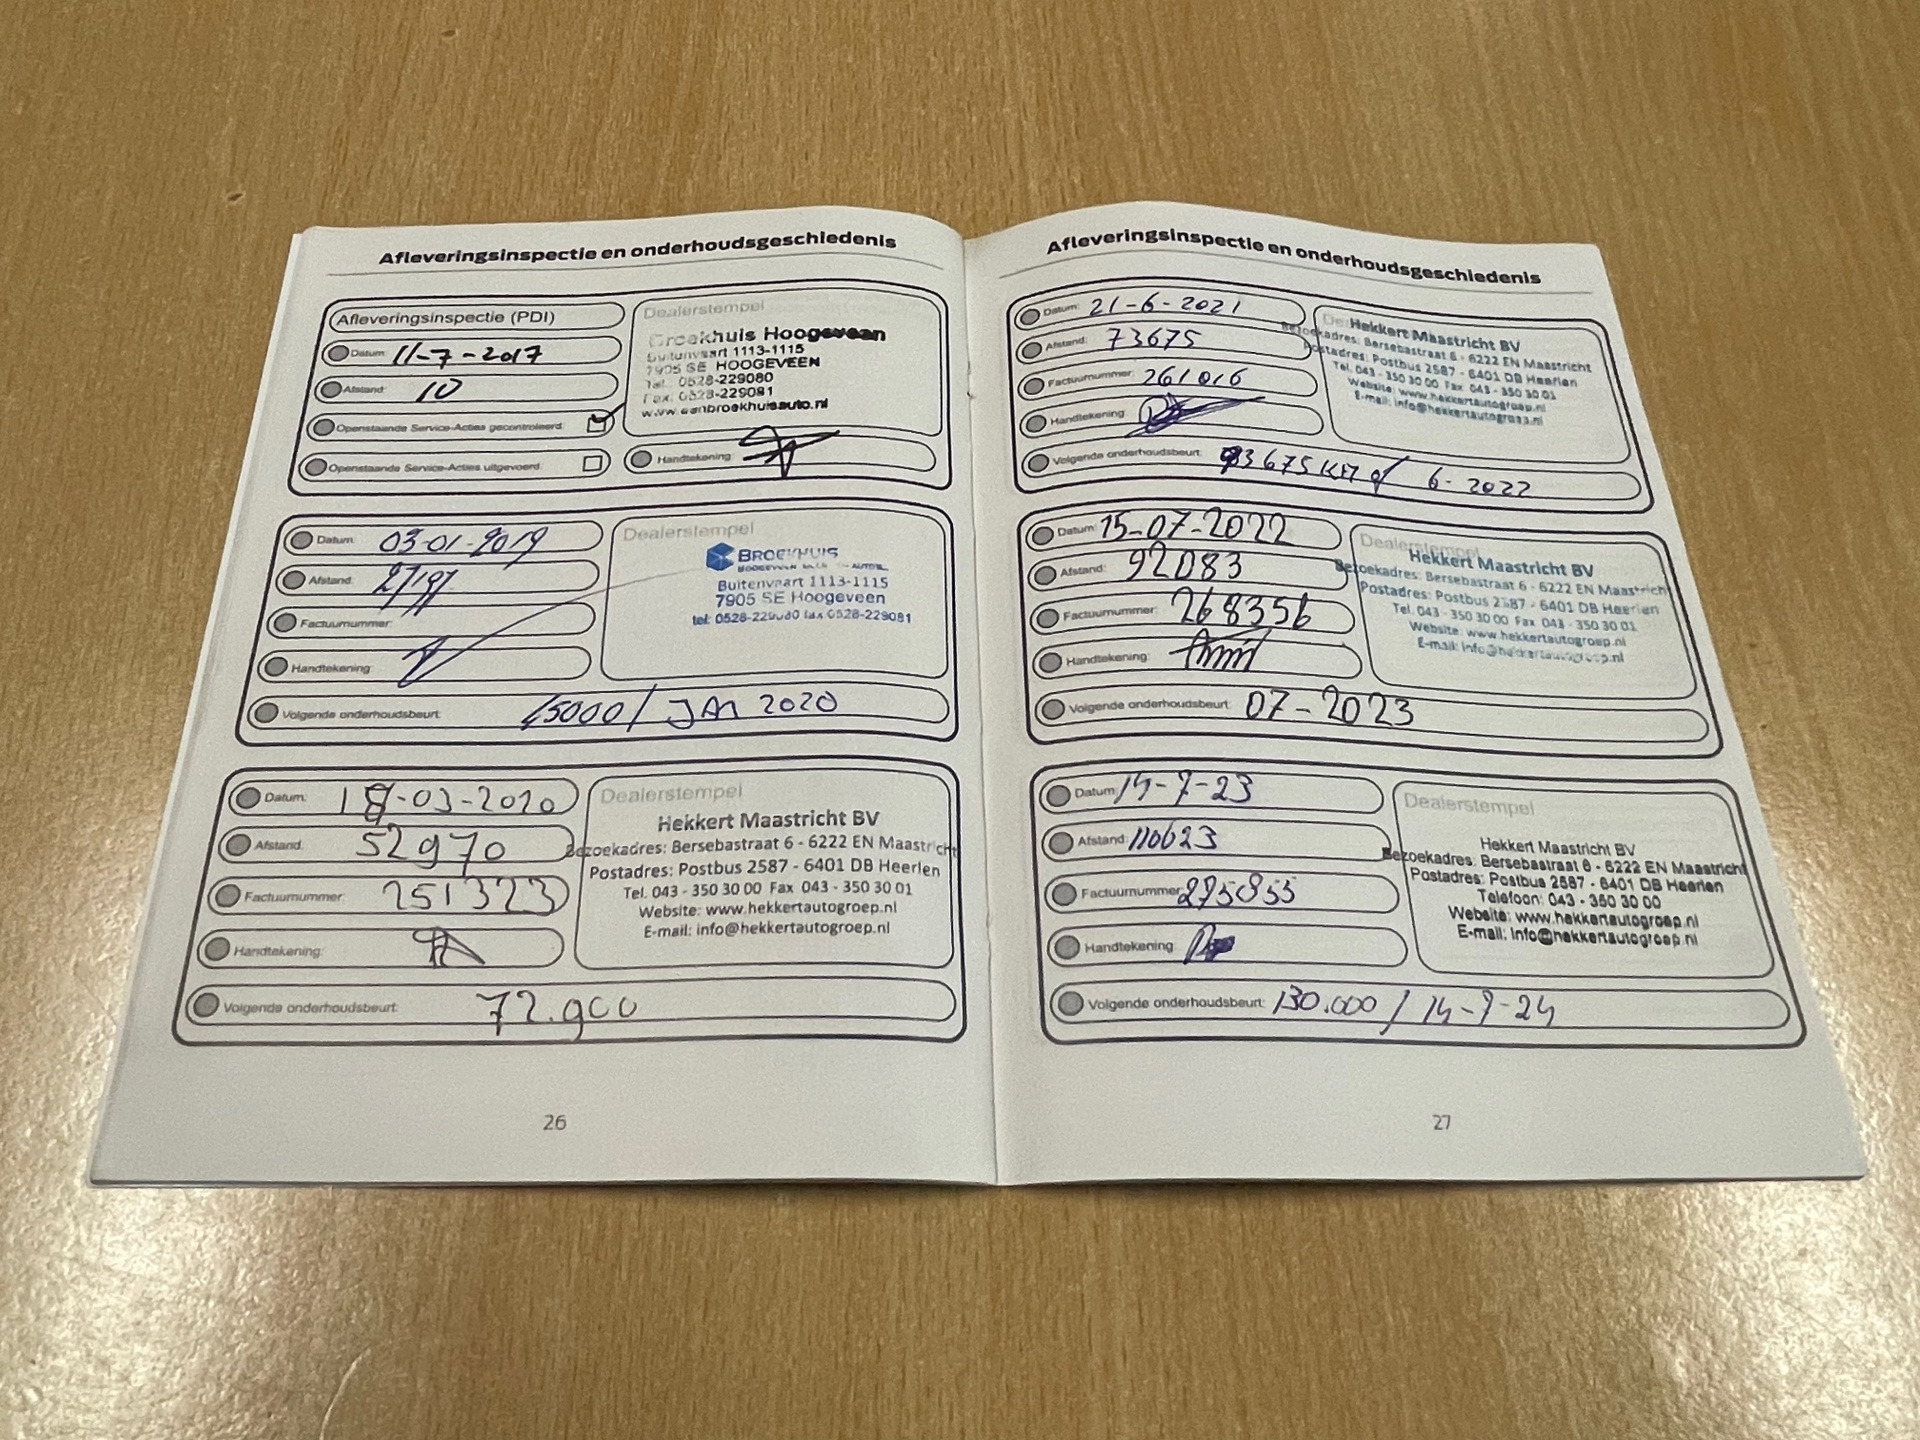 Afleveringsinspectie en onderhoudsgeschiedenis
Afleveringsinspectie (PDI)
Datum: 11-7-2017
Afstand: 10
Openstaande Service-Acties gecontroleerd:
Openstaande Service-Acties uitgevoerd:
Dealerstempel
Broekhuis Hoogeveen
Buitenvaart 1113-1115
7905 SE HOOGEVEEN
Tel. 0528-229080
Fax: 0528-229081
www.vanbroekhuisauto.nl
Handtekening:
Datum: 03-01-2019
Afstand:
Factuurnummer:
Handtekening:
Volgende onderhoudsbeurt: 45000/ JAN 2020
Dealerstempel
BROEKHUIS
Buitenvaart 1113-1115
7905 SE Hoogeveen
tel: 0528-229080 fax 0528-229081
Datum: 18-03-2020
Afstand: 52970
Factuurnummer: 251323
Handtekening:
Volgende onderhoudsbeurt: 72.900
Dealerstempel
Hekkert Maastricht BV
Bezoekadres: Bersebastraat 6 - 6222 EN Maastricht
Postadres: Postbus 2587 - 6401 DB Heerlen
Tel. 043 - 350 30 00 Fax 043 - 350 30 01
Website: www.hekkertautogroep.nl
E-mail: info@hekkertautogroep.nl
26
Afleveringsinspectie en onderhoudsgeschiedenis
Datum: 21-6-2021
Afstand: 73675
Factuurnummer: 261016
Handtekening:
Volgende onderhoudsbeurt: 93675 KM of / 6-2022
Hekkert Maastricht BV
Bezoekadres: Bersebastraat 6 - 6222 EN Maastricht
Postadres: Postbus 2587 - 6401 DB Heerlen
Tel. 043 - 350 30 00 Fax 043 - 350 30 01
Website: www.hekkertautogroep.nl
E-mail: info@hekkertautogroep.nl
Datum: 15-07-2022
Afstand: 92083
Factuurnummer: 268356
Handtekening:
Volgende onderhoudsbeurt: 07-2023
Dealerstempel
Hekkert Maastricht BV
Bezoekadres: Bersebastraat 6 - 6222 EN Maastricht
Postadres: Postbus 2587 - 6401 DB Heerlen
Tel. 043 - 350 30 00 Fax 043 - 350 30 01
Website: www.hekkertautogroep.nl
E-mail: info@hekkertautogroep.nl
Datum: 14-7-23
Afstand: 110623
Factuurnummer: 275855
Handtekening:
Volgende onderhoudsbeurt: 130.000 / 14-7-24
Dealerstempel
Hekkert Maastricht BV
Bezoekadres: Bersebastraat 6 - 6222 EN Maastricht
Postadres: Postbus 2587 - 6401 DB Heerlen
Telefoon: 043 - 350 30 00
Website: www.hekkertautogroep.nl
E-mail: info@hekkertautogroep.nl
27